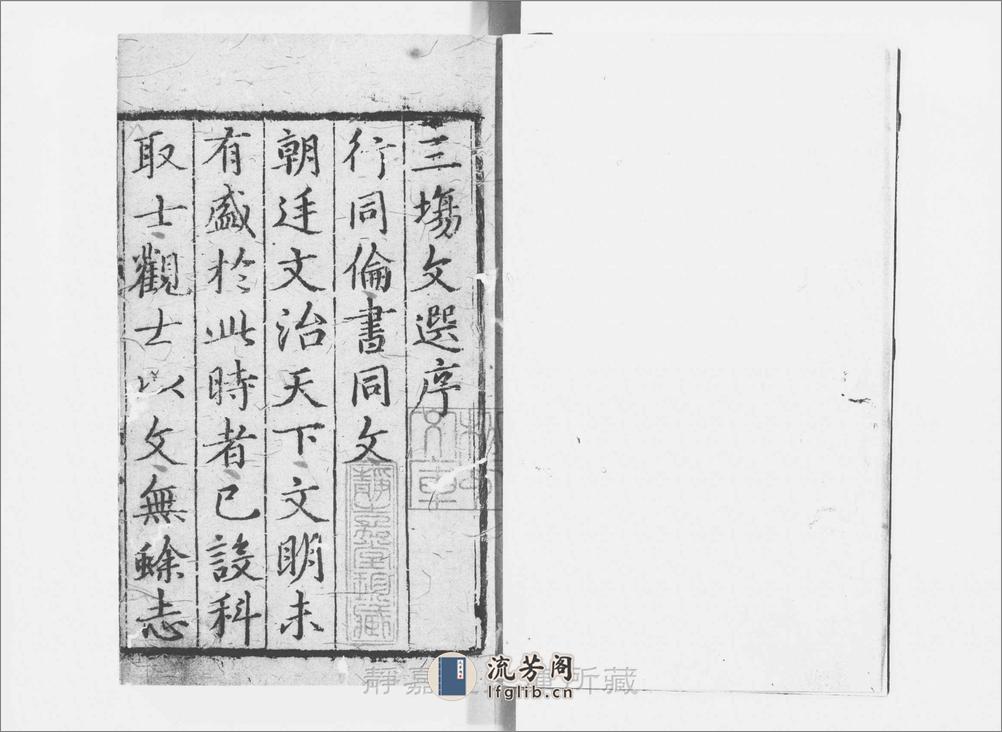 三場文選序
行同倫書同文
朝廷文治天下文明未
有盛於此時者已設科
取士觀士以文無餘志
靜嘉堂珍藏
靜嘉 所藏
流芳阁
lfglib.cn